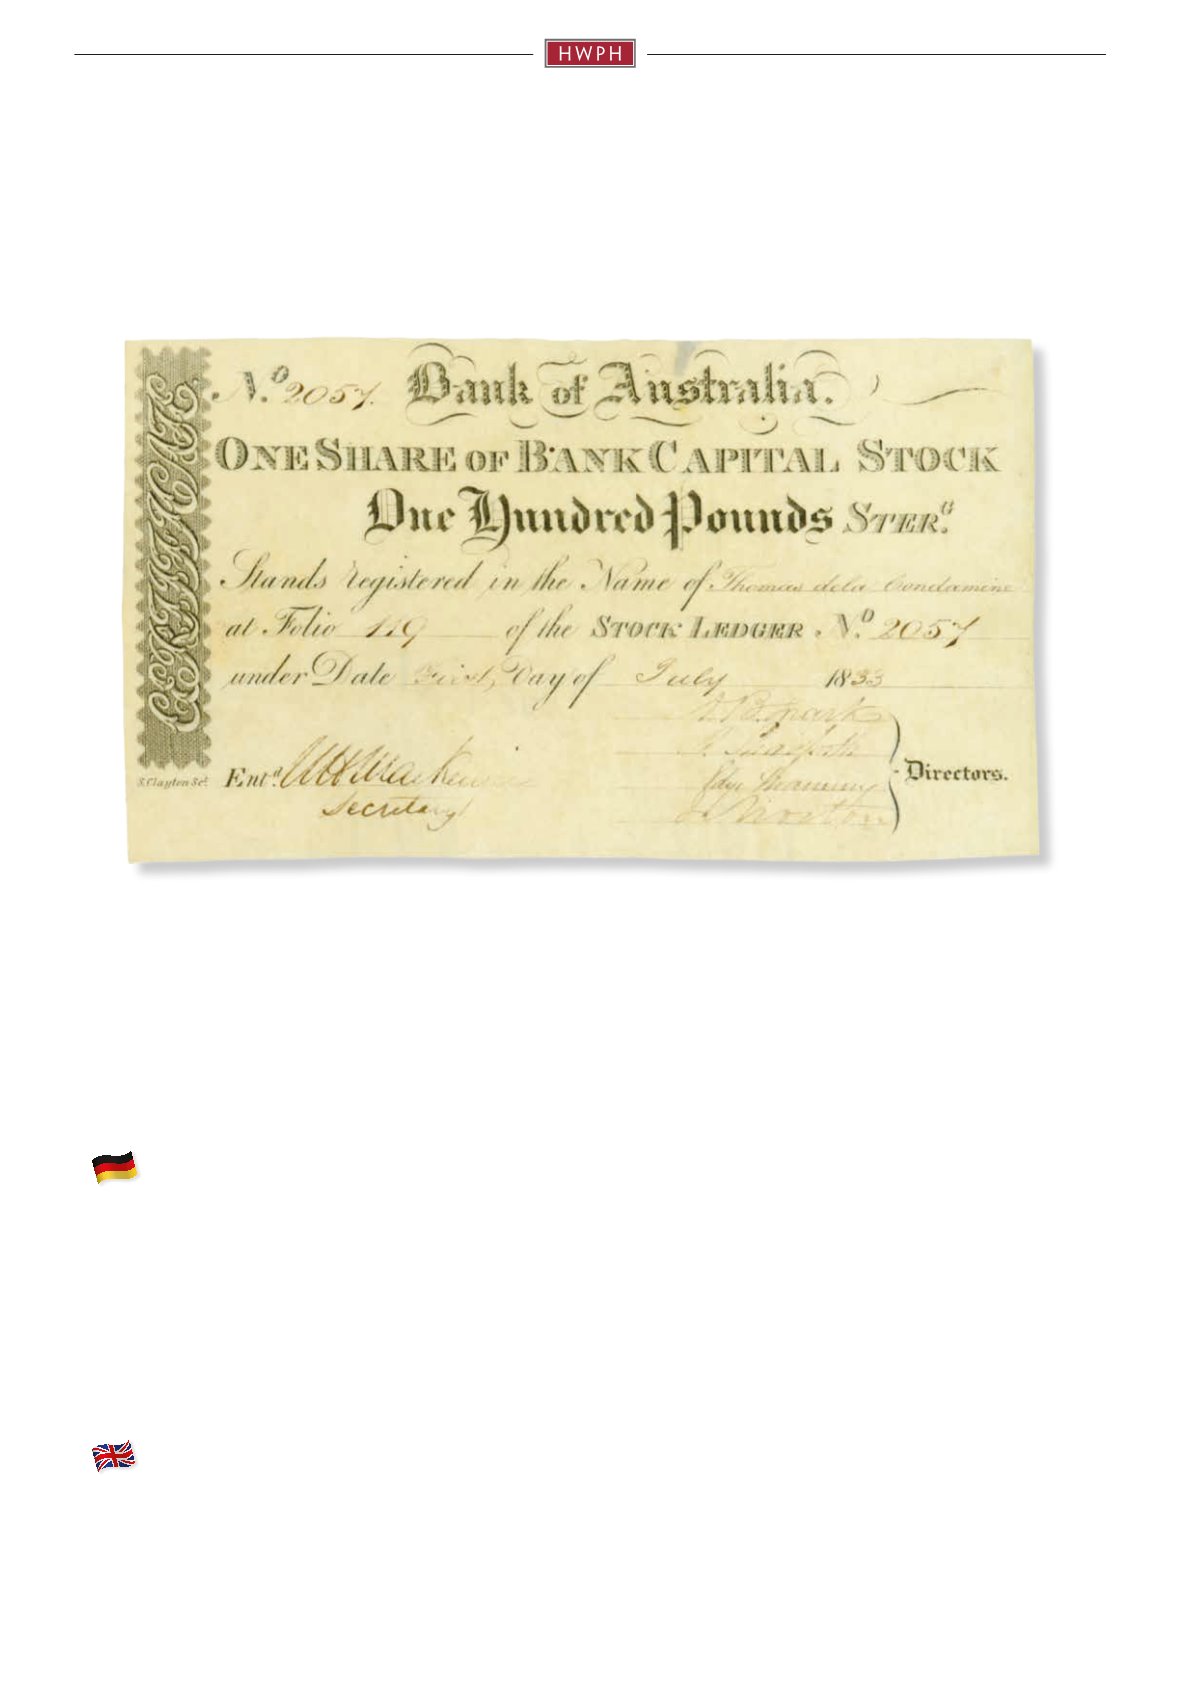 HWPH
CERTIFICATE.
N.º 2057. Bank of Australia.
ONE SHARE OF BANK CAPITAL STOCK
One Hundred Pounds STER.G
Stands registered in the Name of Thomas de la Condamine
at Folio 119 of the STOCK LEDGER N.º 2057
under Date First, Day of July 1833
S. Clayton Sct.
Ent.d Secretary
Directors.